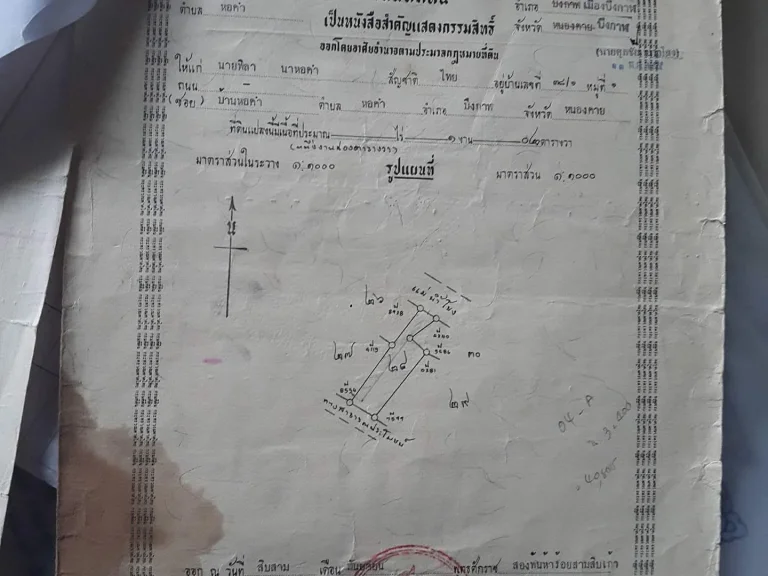 ตำบล หอคำ อำเภอ บึงกาฬ เมืองบึงกาฬ
เป็นหนังสือสำคัญแสดงกรรมสิทธิ์ จังหวัด หนองคาย บึงกาฬ
ออกโดยอาศัยอำนาจตามประมวลกฎหมายที่ดิน
ให้แก่ นายศิลา นาหอคำ สัญชาติ ไทย อยู่บ้านเลขที่ ๓๘/๑ หมู่ที่ ๑
ถนน –
(ซอย) บ้านหอคำ ตำบล หอคำ อำเภอ บึงกาฬ จังหวัด หนองคาย
ที่ดินแปลงนี้มีเนื้อที่ประมาณ ไร่ ๑ งาน ๐๒ ตารางวา
(หนึ่งงานสองตารางวา)
มาตราส่วนในระวาง ๑:๑๐๐๐ รูปแผนที่ มาตราส่วน ๑:๑๐๐๐
น
แม่น้ำโขง
๒๖
๒๗
๒๘
๓๐
๒๙
ทางสาธารณประโยชน์
ออก ณ วันที่ สิบสาม เดือน กันยายน พุทธศักราช สองพันห้าร้อยสามสิบเก้า